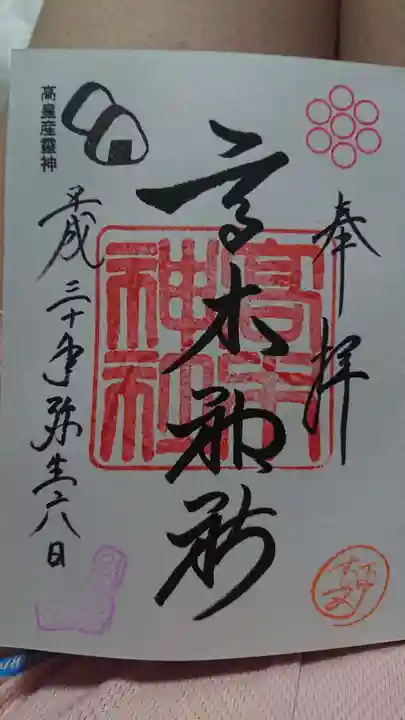 奉拝
高木神社
高木神社
高皇産靈神
平成三十年弥生六日